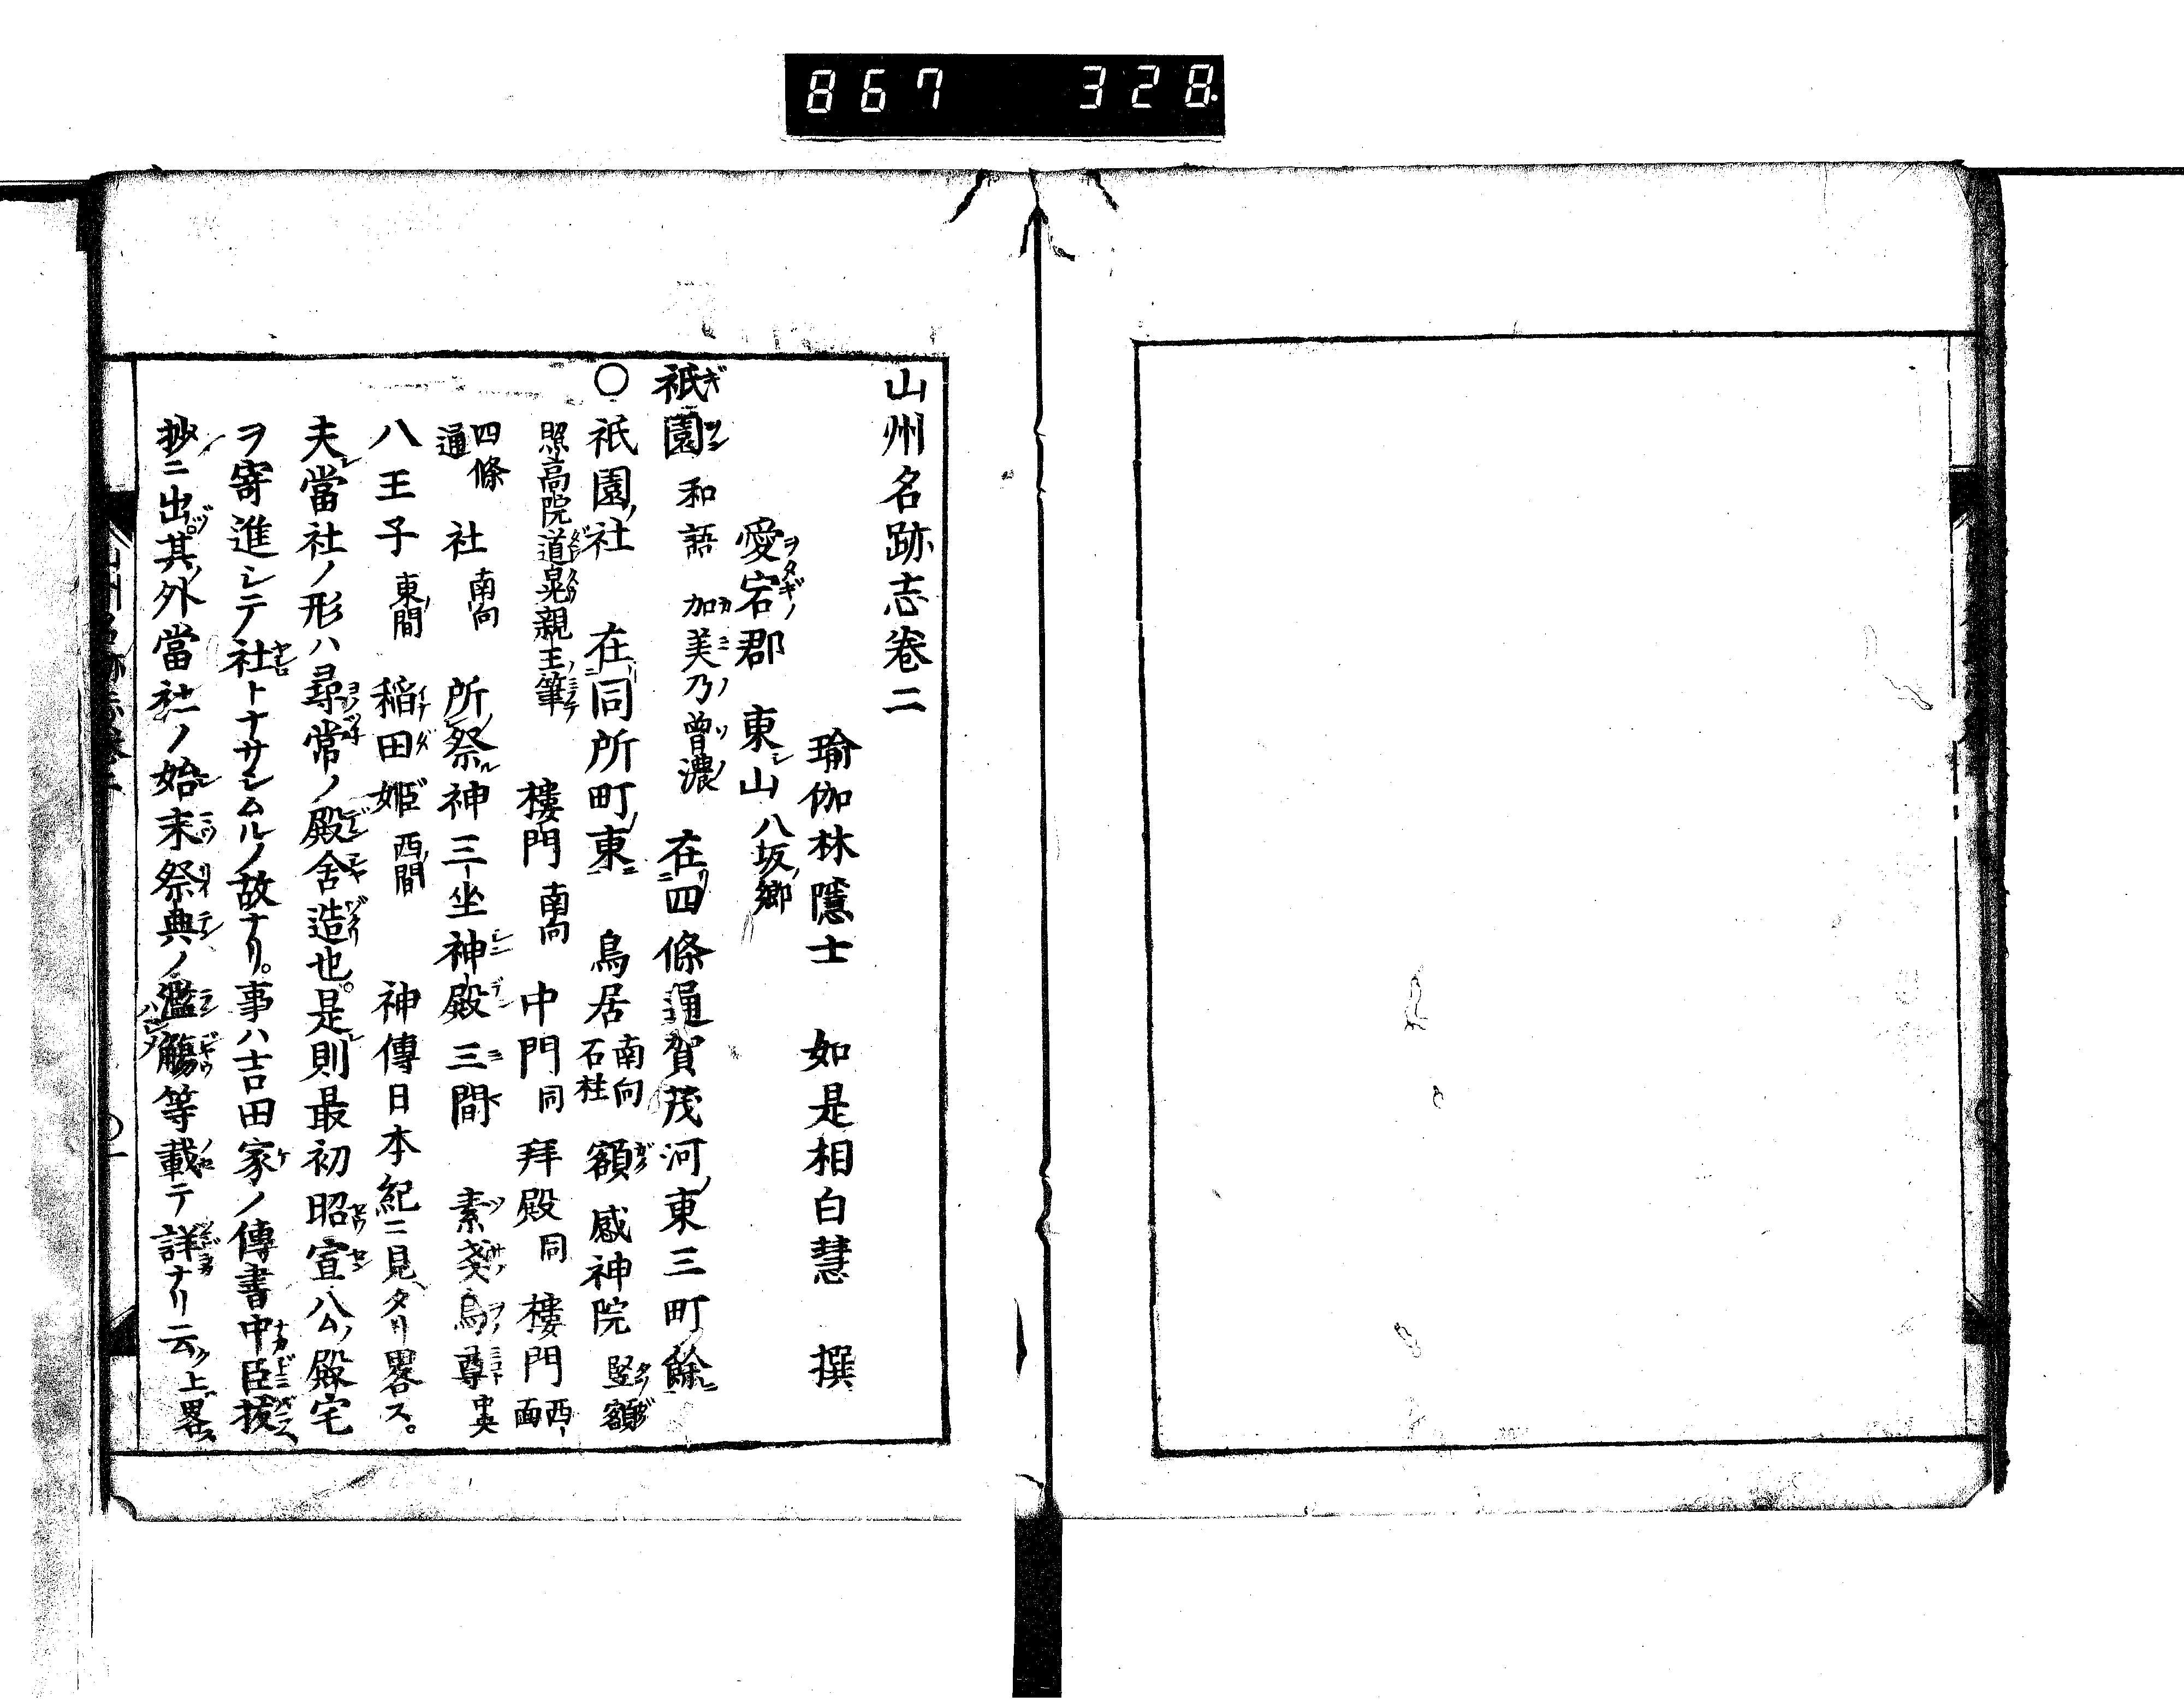 867 328
山州名跡志卷二
瑜伽林隱士 如是相白慧 撰
愛宕郡 東山 八坂郷
祇園 和語 加美乃曾濃 在四條通賀茂河東三町餘
○祇園社 在同所町東 鳥居 南向 石柱 額 感神院 竪額
照高院道晃親王筆 樓門 南向 中門 同 拜殿 同 樓門 西面
四條通 社 南向 所祭神三坐神殿三間 素戔烏尊 中央
八王子 東間 稲田姬 西間 神傳日本紀ニ見タリ畧ス。
夫當社ノ形ハ尋常ノ殿舍造也。是則最初昭宣公ノ殿宅
ヲ寄進シテ社トナサシムルノ故ナリ。事ハ吉田家ノ傳書中臣祓
抄ニ出其外當社ノ始末祭典ノ濫觴等載テ詳ナリ云々上畧